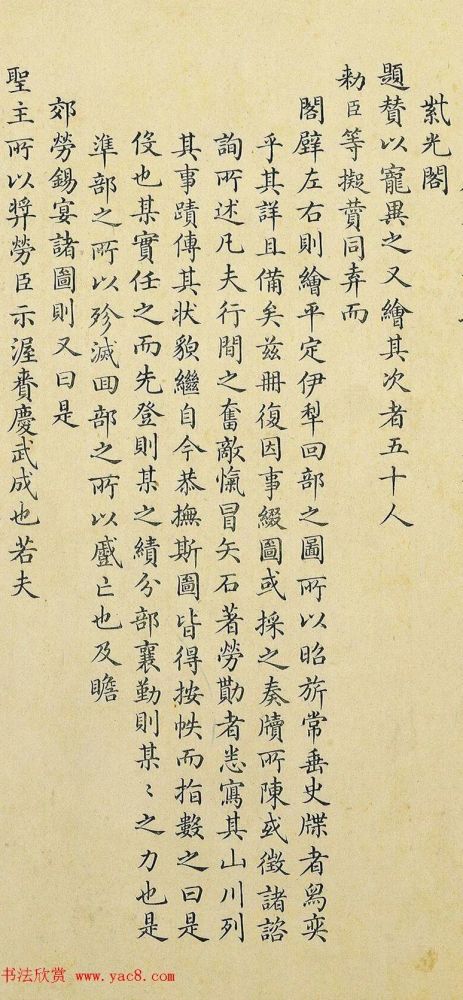 紫光閣
題贊以寵異之又繪其次者五十人
勑臣等擬贊同弆而
閣壁左右則繪平定伊犁回部之圖所以昭旂常垂史牒者舄奕
乎其詳且備矣兹冊復因事綴圖或採之奏牘所陳或徵諸諮
詢所述凡夫行間之奮敵愾冒矢石著勞勩者悉寫其山川列
其事蹟傳其狀貌繼自今恭撫斯圖皆得按帙而指數之曰是
役也某實任之而先登則某之績分部襄勤則某〻之力也是
準部之所以殄滅回部之所以盪亡也及瞻
郊勞錫宴諸圖則又曰是
聖主所以獎勞臣示渥賚慶武成也若夫
书法欣赏 www.yac8.com